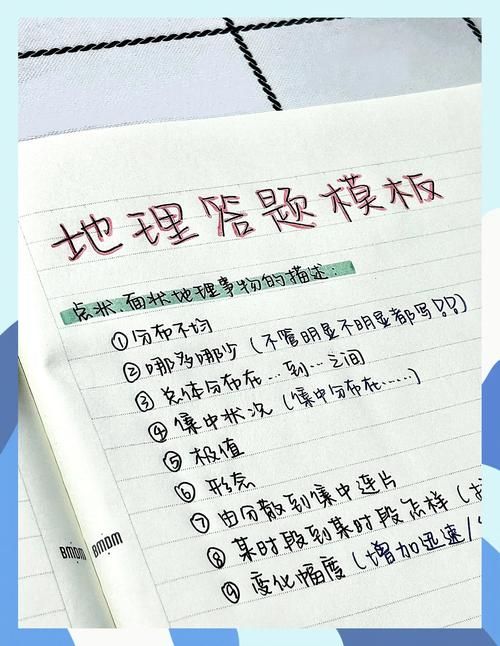 地理答题模板
点状、面状地理事物的描述：
①分布不均
②哪多哪少（不管明显不明显都写！！）
③总体分布在…到…之间
④集中状况（集中分布在……）
⑤极值
⑥形态
⑦由分散到集中连片
⑧某时段到某时段怎样（
⑨变化幅度（增加迅速/
BMDM BMDM